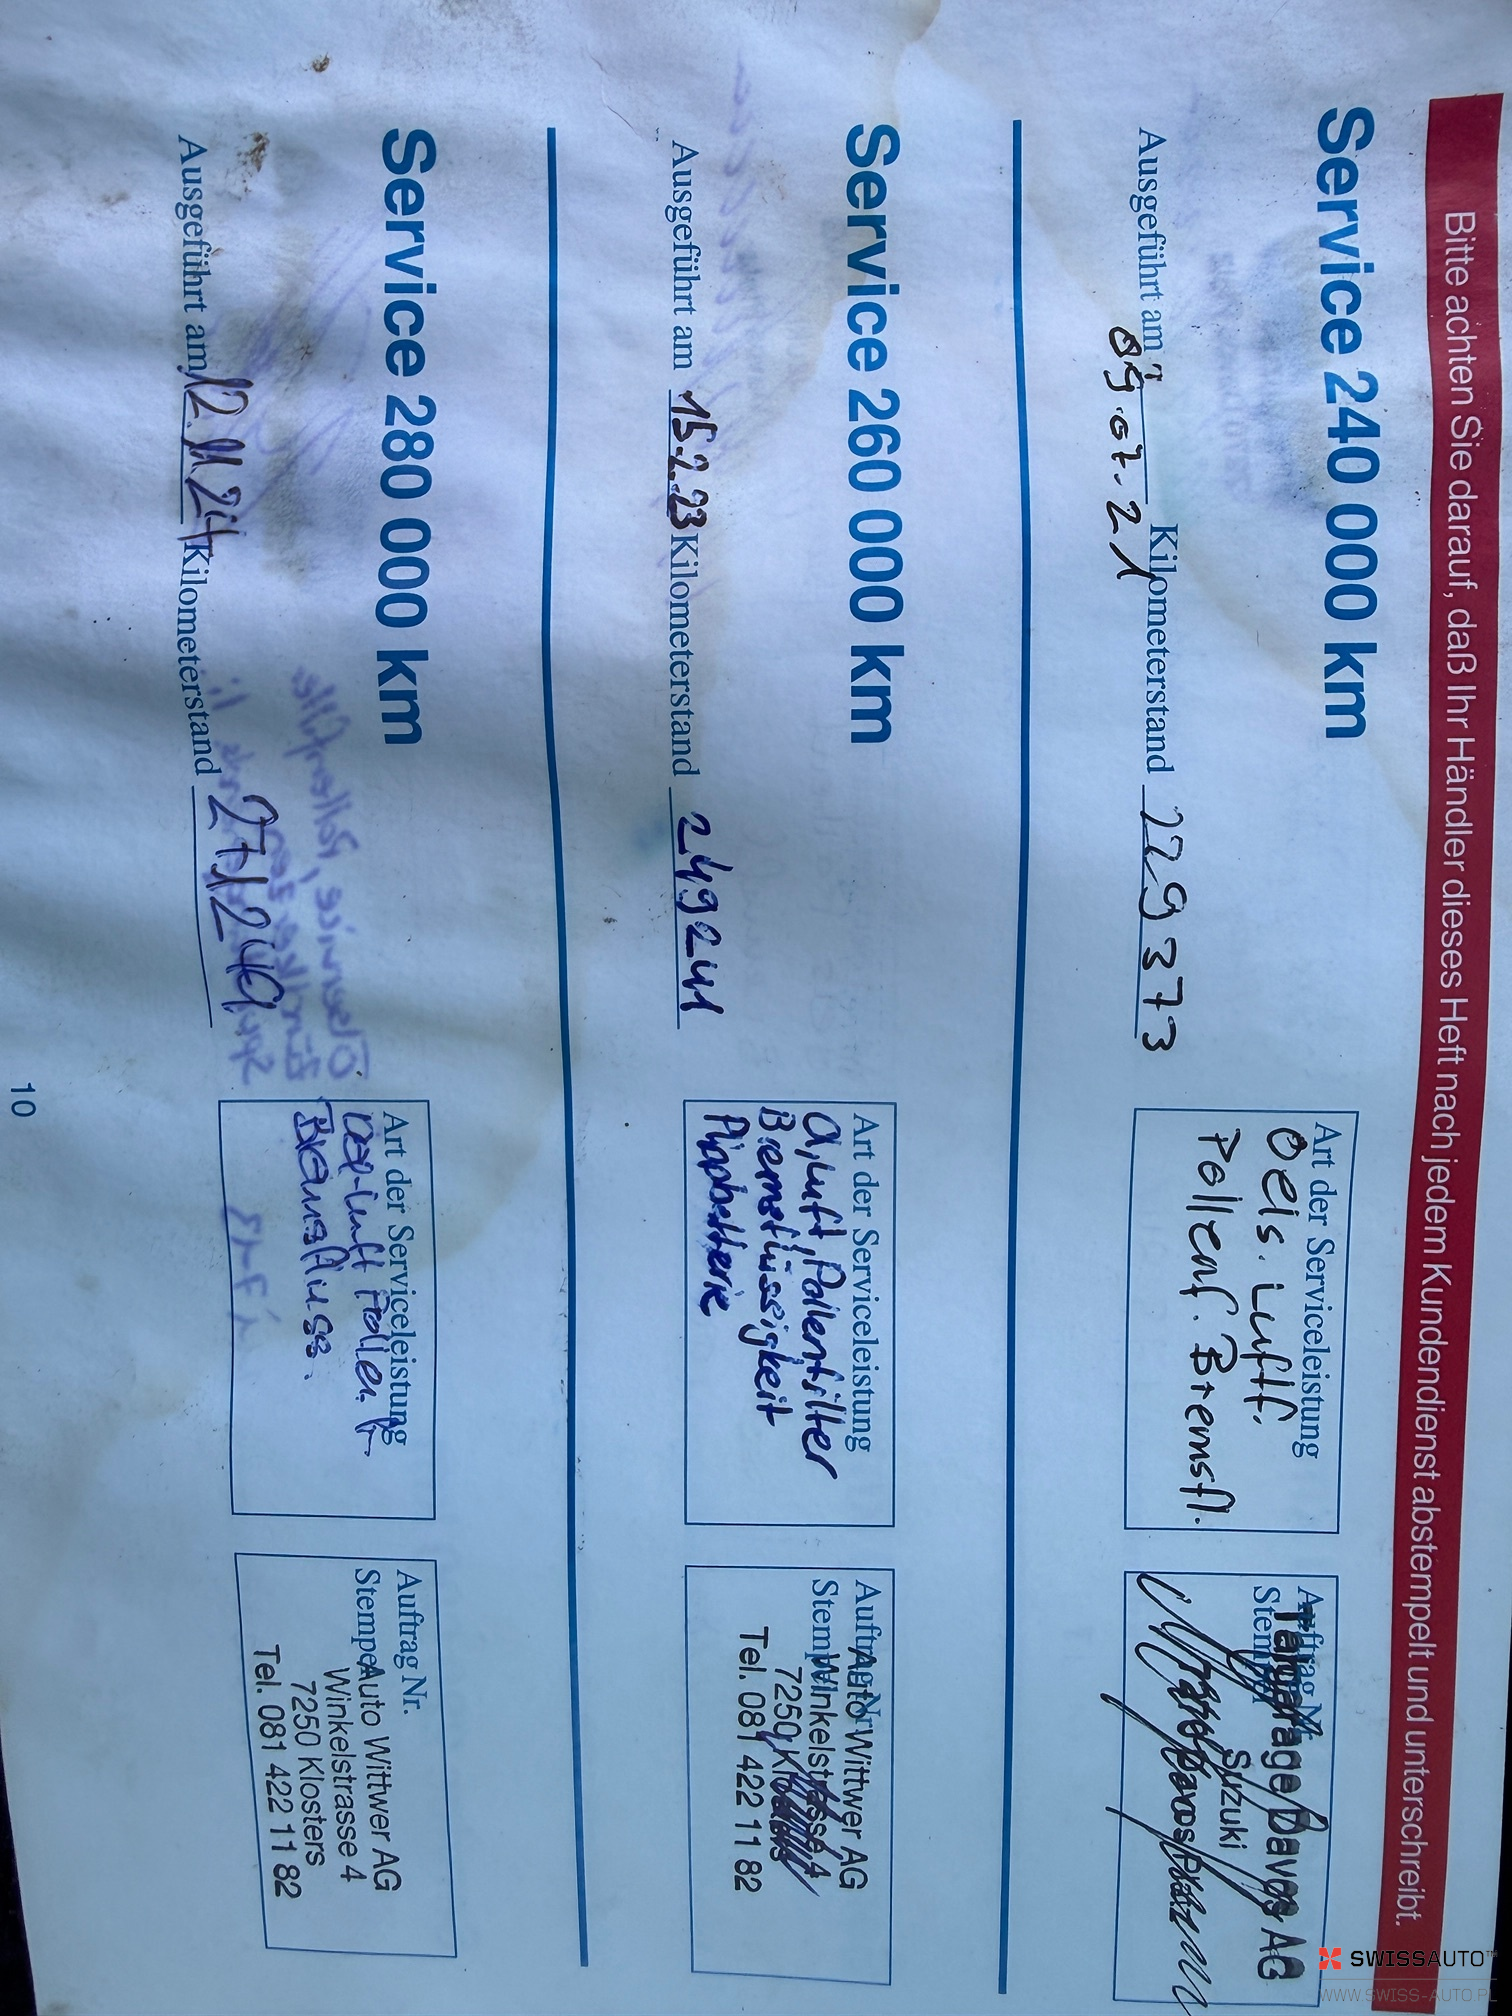 Bitte achten Sie darauf, daß Ihr Händler dieses Heft nach jedem Kundendienst abstempelt und unterschreibt.
Service 240 000 km
Ausgeführt am 09.07.21 Kilometerstand 229373
Art der Serviceleistung
Oels. Luftf.
Pollenf. Bremsfl.
Auftrag Nr.
Stempel
Davos AG
Suzuki
Service 260 000 km
Ausgeführt am 15.2.23 Kilometerstand 249241
Art der Serviceleistung
Öl, Luft, Pollenfilter
Bremsflüssigkeit
Auftrag Nr.
Stempel
Auto Wittwer AG
Winkelstrasse 4
7250 Klosters
Tel. 081 422 11 82
Service 280 000 km
Ausgeführt am 12.11.24 Kilometerstand 271240
Art der Serviceleistung
Luft Pollen f.
Bremsflüss.
Auftrag Nr.
Stempel
Auto Wittwer AG
Winkelstrasse 4
7250 Klosters
Tel. 081 422 11 82
10
SWISSAUTO™
WWW.SWISS-AUTO.PL